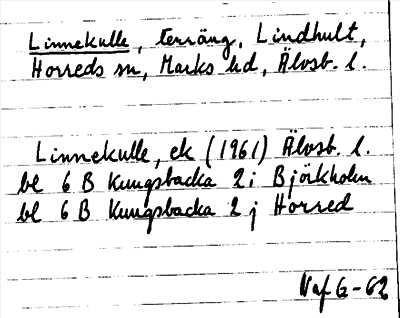 Linnekulle, terräng, Lindhult,
Horreds sn, Marks hd, Älvsb. l.
Linnekulle, ek (1961) Älvsb. l.
bl 6 B Kungsbacka 2 i Björkholm
bl 6 B Kungsbacka 2 j Horred
Vaf G-62